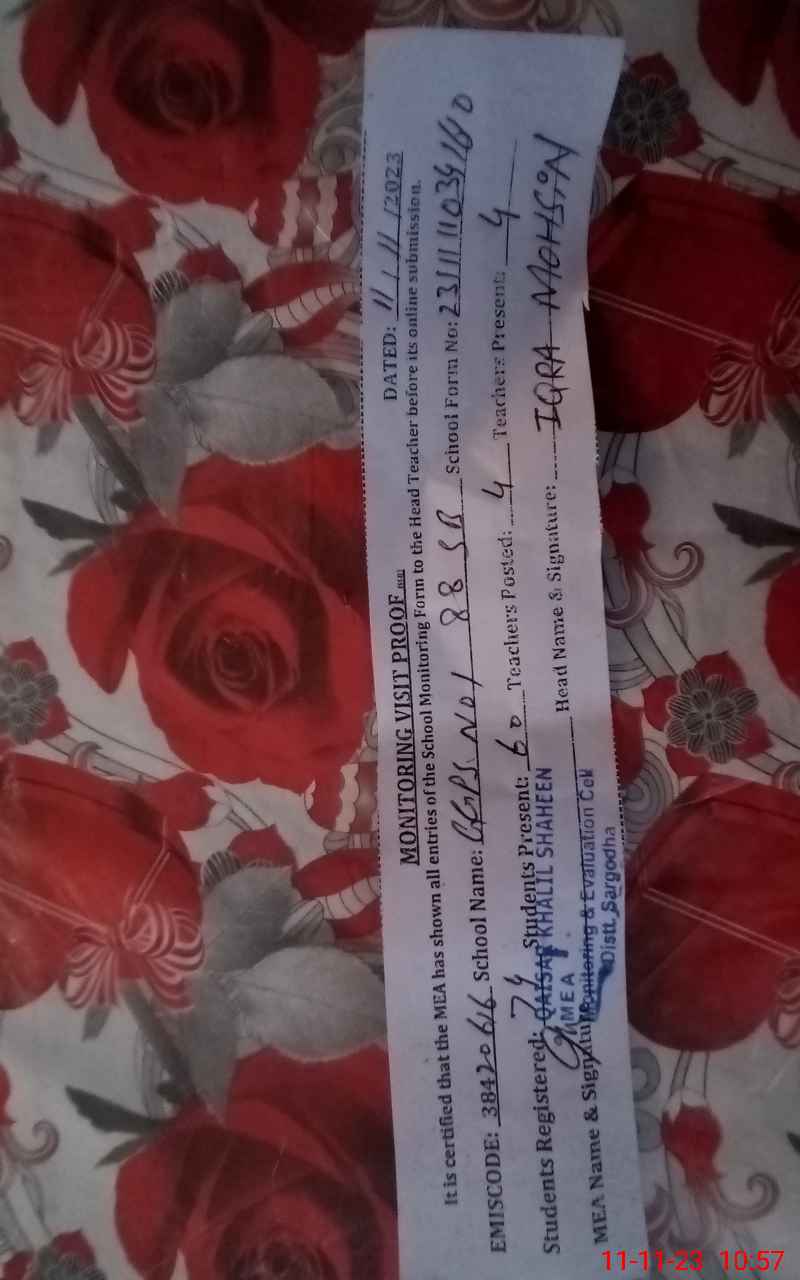 MONITORING VISIT PROOF DATED: 11/11/2023
It is certified that the MEA has shown all entries of the School Monitoring Form to the Head Teacher before its online submission.
EMISCODE: 38420616 School Name: GGPS No1 88 SB School Form No:
Students Registered: 74 Students Present: 60 Teachers Posted: 4 Teachers Present: 4
QAISAR KHALIL SHAHEEN
MEA
MEA Name & Signature: Head Name & Signature: IQRA MOHSIN
Monitoring & Evaluation Cell
Distt. Sargodha
11-11-23 10:57